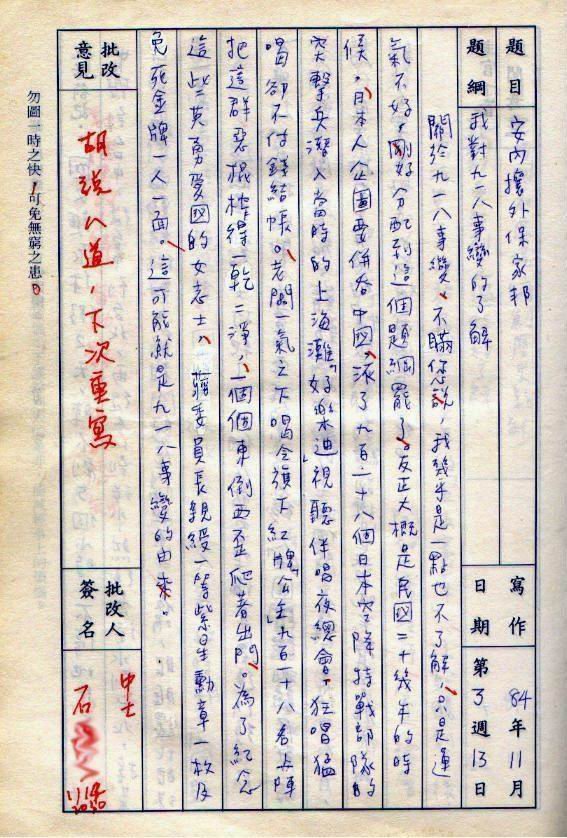 題目 安內攘外保家邦
題綱 我對九一八事變的了解
寫作日期 84年11月 第3週13日
關於九一八事變、不瞞您說,我幾乎是一點也不了解,只是運
氣不好,剛好分配到這個題綱罷了。反正大概是民國二十幾年的時
候,日本人企圖要併吞中國,派了九百一十八個日本空降特戰部隊的
突擊兵潛入當時的上海灘「好樂迪視聽伴唱夜總會」狂唱猛
唱卻不付錢結帳。老闆一氣之下喝令旗下「紅牌公主」九百一十八名上陣
把這群惡棍榨得一乾二淨,一個個東倒西歪爬著出門。為了紀念
這些英勇愛國的女志士,蔣委員長親綬一等紫星勳章一枚及
免死金牌一人一面。這可能就是九一八事變的由來。
批改意見 胡說八道,下次重寫
批改人簽名 中士 石
勿圖一時之快!可免無窮之患。